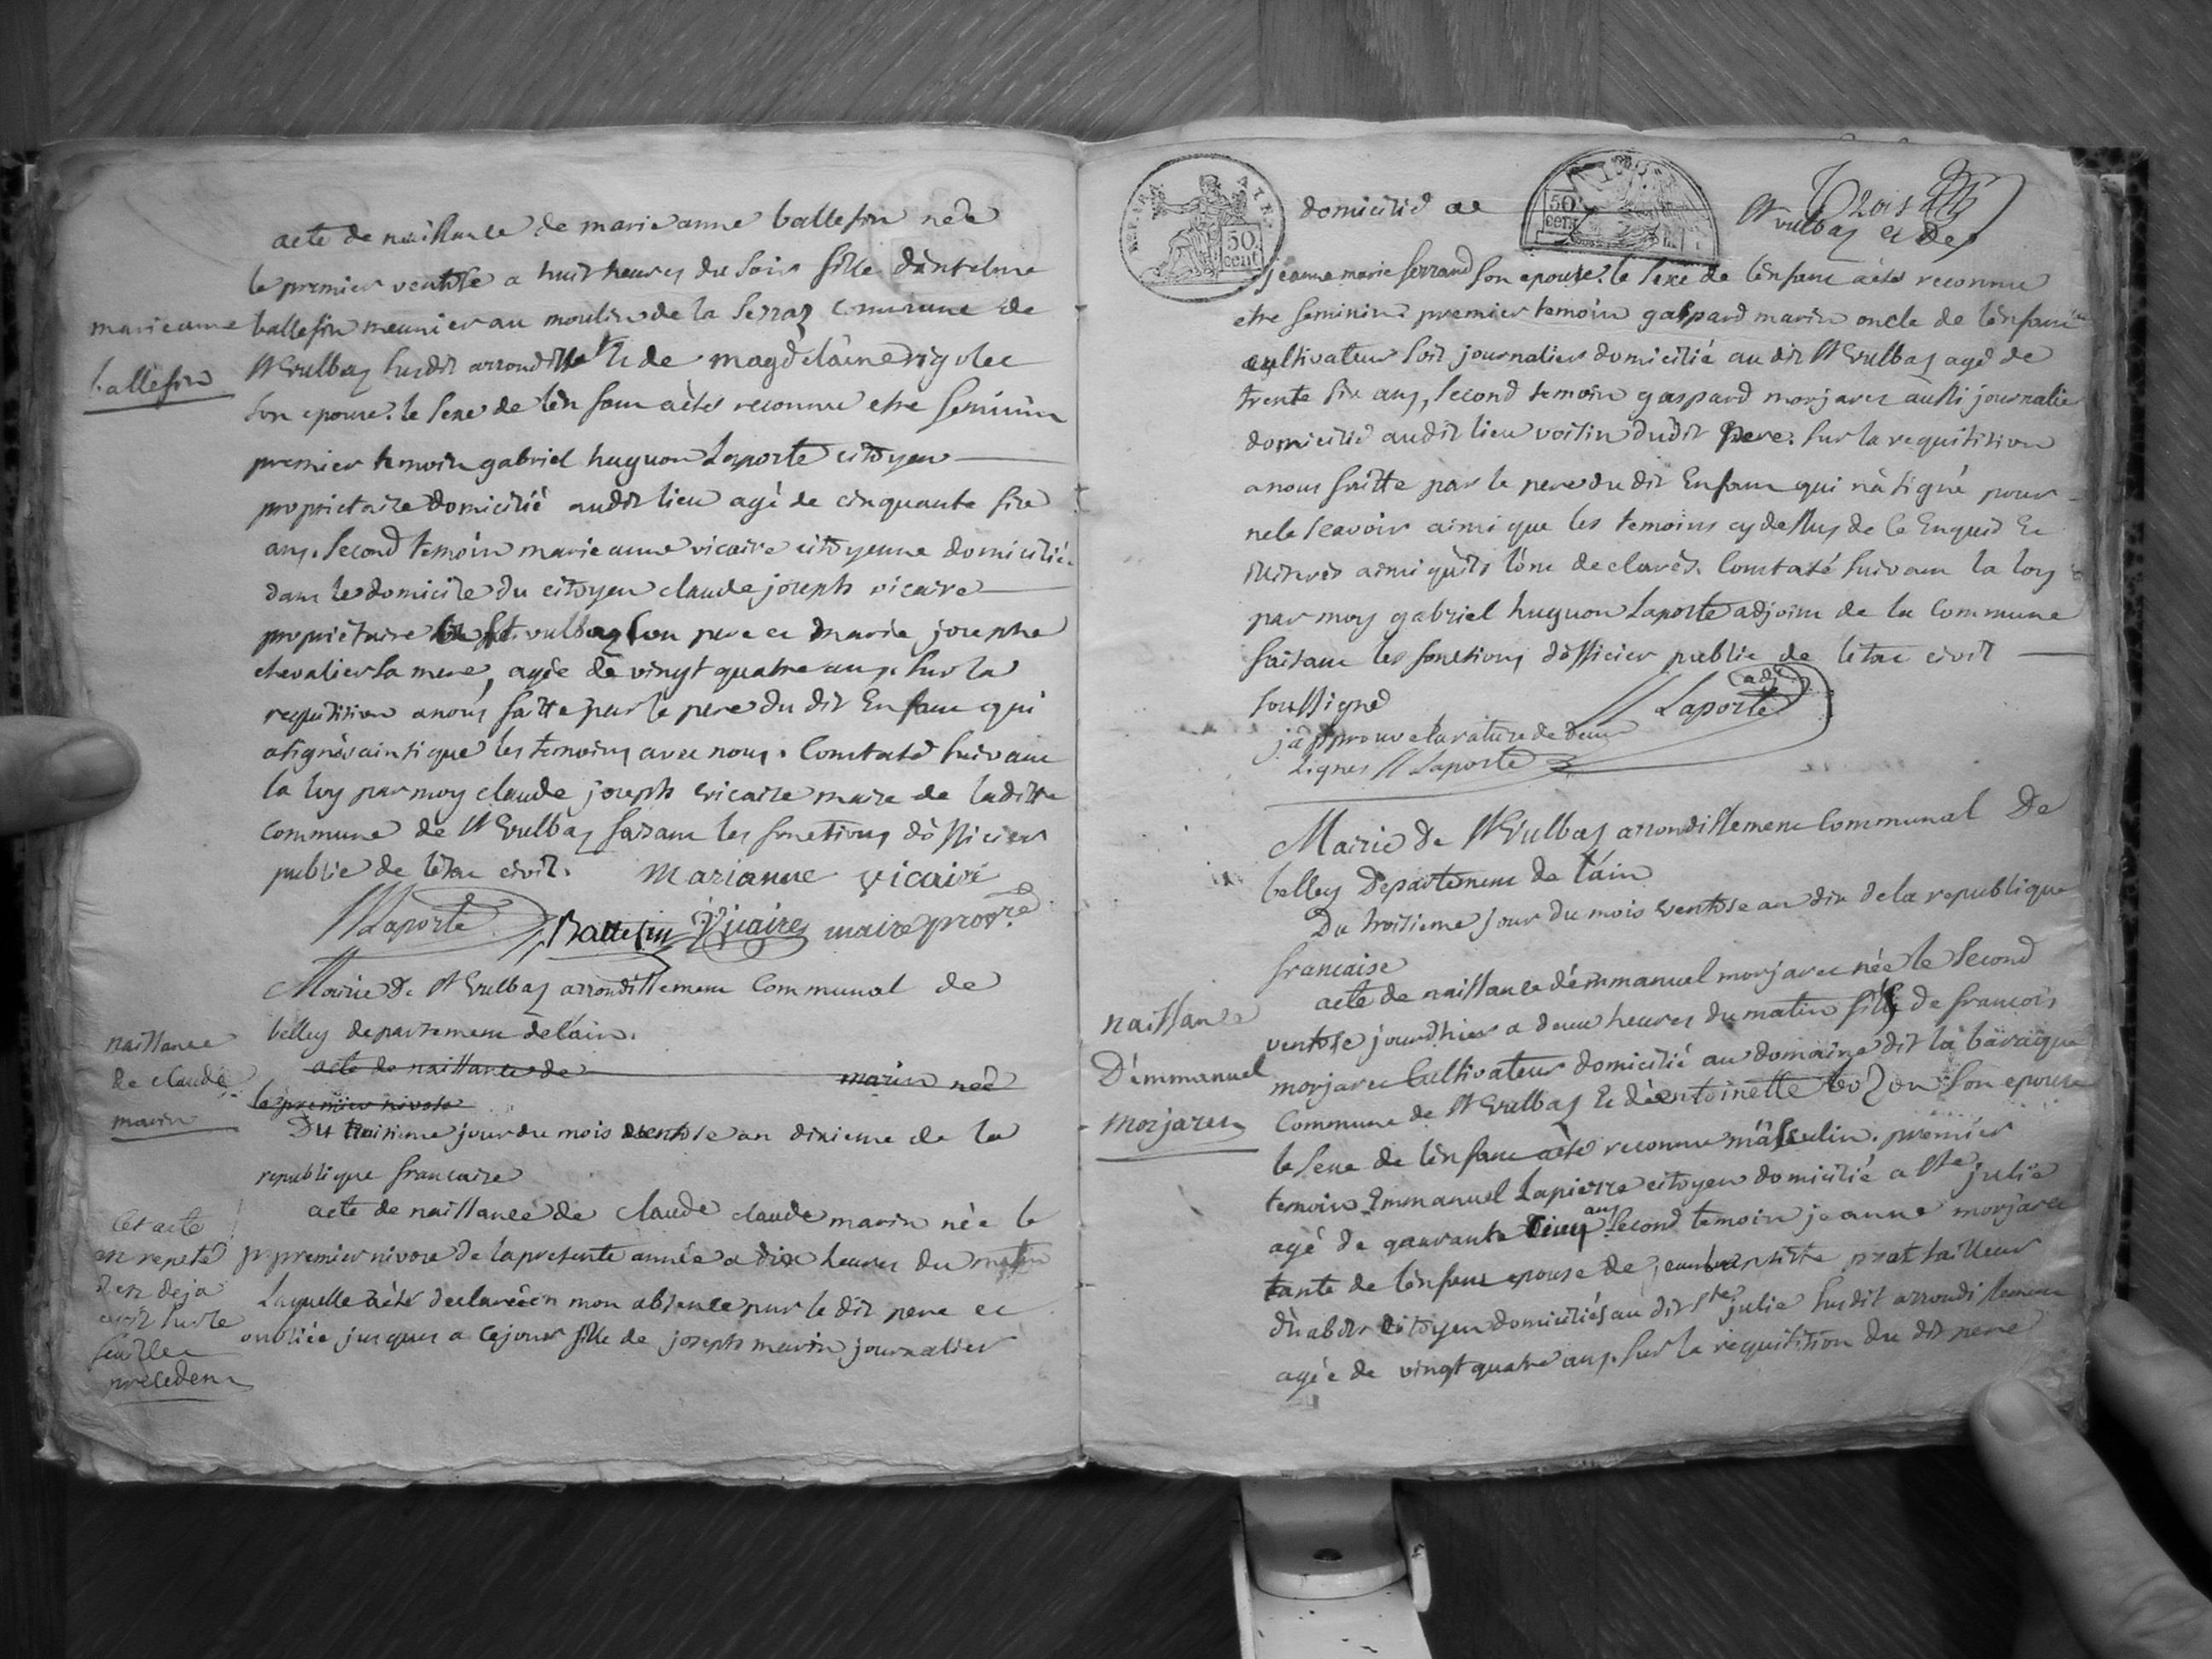 acte de naissance de marie anne ballefin née
le premier ventose a huit heures du soir fille d'antelme
marie anne
ballefin
ballefin meunier au moulin de la serraz commune de
St Vulbas susdit arrondisst et de magdelaine rigolet
son epouse. le sexe de lenfant aété reconnu etre feminin
premier temoin gabriel huguon Laporte citoyen
proprietaire domicilié audit lieu agé de cinquante six
ans. second temoin marie anne vicaire citoyenne domicilié
dans le domicile du citoyen claude joseph vicaire
propriétaire St. vulbas son pere et marie josephe
chevalier sa mere, agée de vingt quatre ans. sur la
requisition anous faitte par le pere du dit Enfant qui
asigné ainsi que les temoins avec nous. Constaté suivant
la loy par moy claude joseph vicaire maire de laditte
commune de St Vulbas faisant les fonctions dofficier
public de letat civil. Marianne vicaire
Laporte Ballefin Vicaire maire provre
Mairie de St Vulbas arrondissement Communal de
belley departement delain.
naissance
de claude
marin
acte de naissance de marin née
le premier nivose
Du troisieme jour du mois ventose an dixieme de la
republique francaise
acte de naissance de claude claude marin née le
premier nivose de lapresente année a dix heures du matin
Laquelle aété declarée en mon absence par le dit pere et
oubliée jusques a cejour fille de joseph marin journalier
Cet acte
est repeté
etant deja
ecrit sur le
feuillet
precedent
domicilié au St vulbas et de
trois
REP. FRA.
50
cent
50
cent
jeanne marie ferrand son epouse. le sexe de lenfant aété reconnu
etre feminin. premier temoin gaspard marin oncle de lenfant
cultivateur soit journalier domicilié au dit St Vulbas agé de
trente six ans, second temoin gaspard morjaret aussi journalier
domicilié audit lieu voisin dudit pere. sur la requisition
anous faitte par le pere du dit Enfant qui nà signé pour
nele scavoir ainsi que les temoins cy dessus de ce Enquis Et
ainsi quils lont declarés. Constaté suivant la loy
par moy gabriel huguon Laporte adjoint de la commune
faisant les fonctions dofficier public de letat civil
soussigné Laporte adj
japprouve la rature de deux
Lignes Laporte
Mairie de St Vulbas arrondissement Communal De
belley Departement de l'ain
Du troisieme jour du mois ventose an dix dela republique
francaise
naissance
D'emmanuel
Morjaret
acte de naissance d'emmanuel morjaret née le second
ventose jourdhier a deux heures du matin fils de francois
morjaret Cultivateur domicilié au domaine dit la baraque
Commune de St Vulbas Et dentoinette bozon son epouse
le sexe de lenfant aété reconnu masculin. premier
temoin Emmanuel Lapierre citoyen domicilié a Ste julie
agé de quarante cinq ans second temoin jeanne morjaret
tante de lenfant epouse de jean baptiste prat tailleur
dhabits citoyen domiciliés au dit Ste julie susdit arrondissement
agée de vingt quatre ans. sur la requisition du dit pere